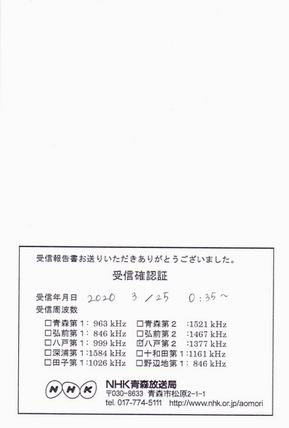 受信報告書お送りいただきありがとうございました。
受信確認証
受信年月日 2020 3/25 0:35~
受信周波数
□青森第1: 963 kHz □青森第2 :1521 kHz
□弘前第1: 846 kHz □弘前第2 :1467 kHz
□八戸第1: 999 kHz ☑八戸第2 :1377 kHz
□深浦第1:1584 kHz □十和田第1:1161 kHz
□田子第1:1026 kHz □野辺地第1: 846 kHz
NHK NHK青森放送局
〒030-8633 青森市松原2-1-1
tel. 017-774-5111 http://www.nhk.or.jp/aomori